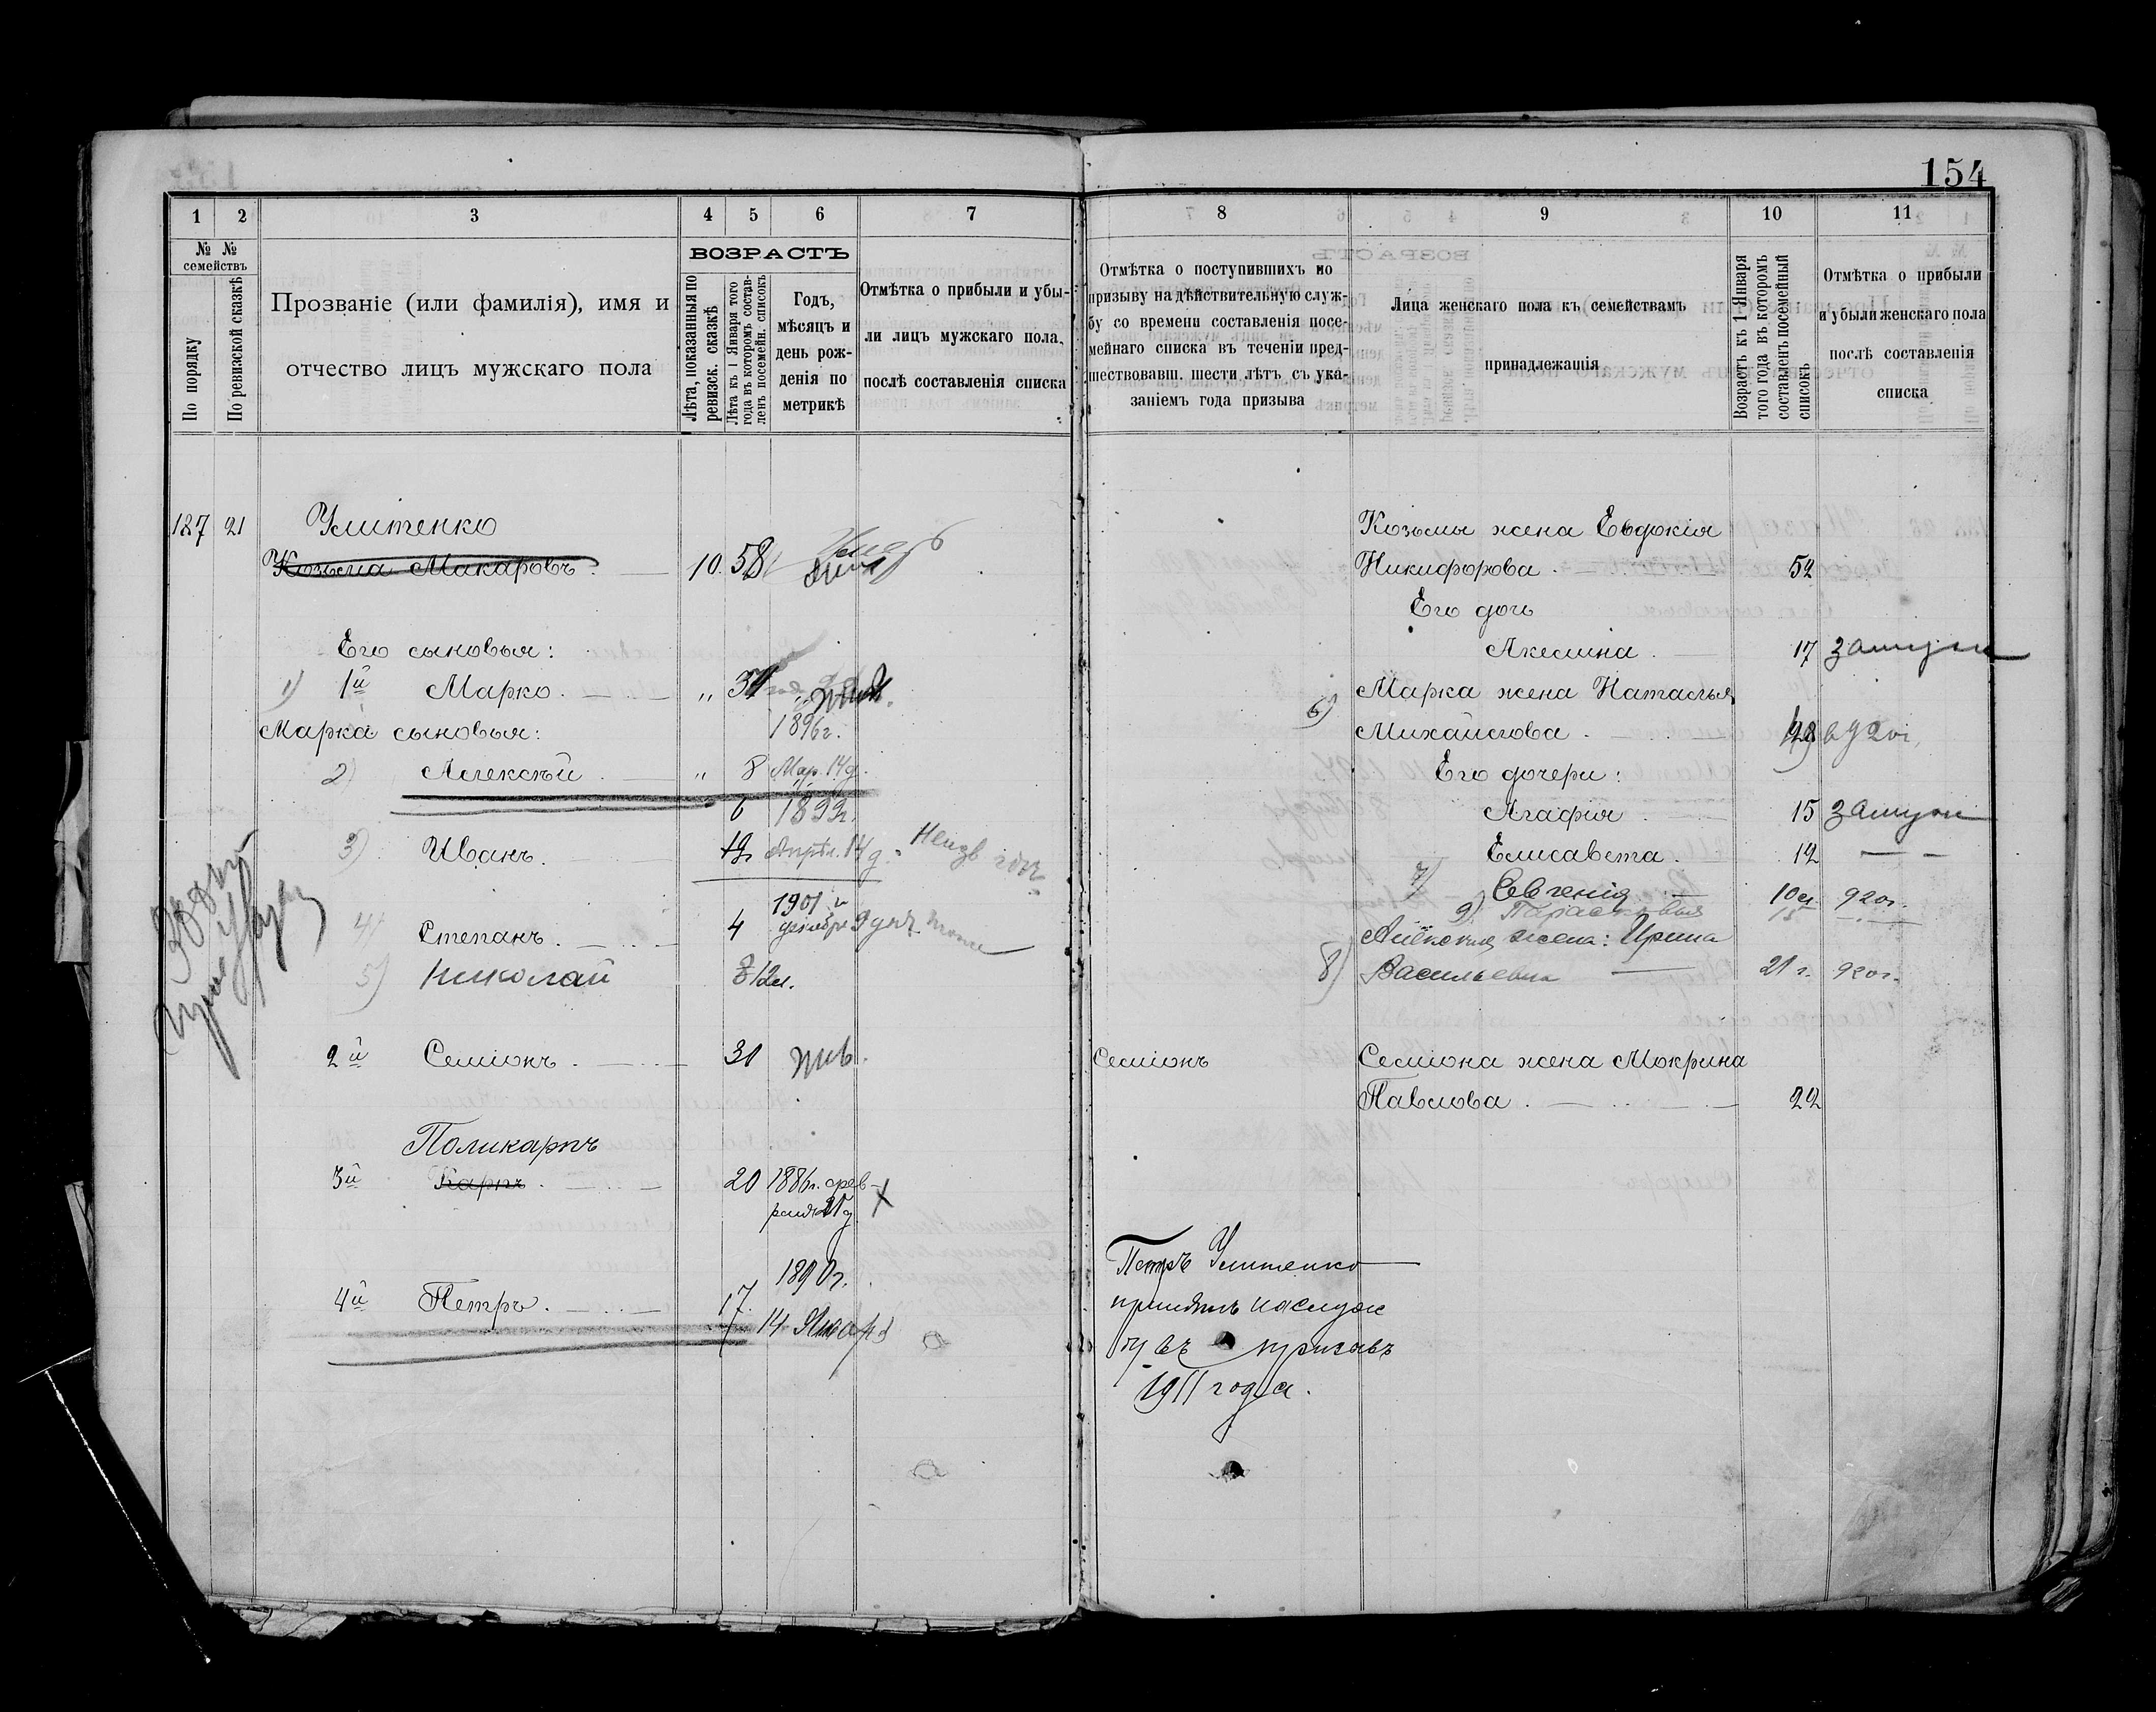 154
1
2
3
4
5
6
7
№ №
семействъ
По порядку
По ревизской сказкѣ
Прозваніе (или фамилія), имя и
отчество лицъ мужскаго пола
ВОЗРАСТЪ
Лѣта, показанныя по
ревизск. сказкѣ
Лѣта къ 1 Января того
года въ которомъ состав-
ленъ посемейн. списокъ
Годъ,
мѣсяцъ и
день рож-
денія по
метрикѣ
Отмѣтка о прибыли и убы-
ли лицъ мужскаго пола,
послѣ составленія списка
187 21 Улитенко
Козьма Макаровъ. 10. 58
Его сыновья:
1) 1й Марко. „ 37
Марка сыновья: 1896г.
2) Алексѣй. „ 8 Мар. 14 д.
6 1899г.
3) Иванъ. 12 Апрѣл. 14 д.
1901
4) Степанъ. 4 декабря 9 дня
5) Николай 12л.
2й Семіонъ. 31 жив.
Поликарпъ
3й Карпъ. 20 1886г. фев-
раля 21 д. X
1890г.
4й Петръ. 17. 14 Января
8
9
10
11
Отмѣтка о поступившихъ по
призыву на дѣйствительную служ-
бу со времени составленія посе-
мейнаго списка въ теченіи пред-
шествовавш. шести лѣтъ съ ука-
заніемъ года призыва
Лица женскаго пола къ семействамъ
принадлежащія
Возрастъ къ 1 Января
того года въ которомъ
составленъ посемейный
списокъ
Отмѣтка о прибыли
и убыли женскаго пола
послѣ составленія
списка
Козьмы жена Евдокія
Никифорова. 52
Его дочь
Акелина. 17 замуж
Марка жена Наталья
6) Михайлова. 48 в 920г.
Его дочери:
Агафія 15 замуж
Елисавета. 12 — —
7) Евгенія 10л. 920г.
9) Парасковья 15
Алексѣя жена: Ирина
8) Васильевна 21 г. 920г.
Семіонъ Семіона жена Мокрина
Павлова. 22
Петръ Улитенко
принятъ на служ
бу въ призывъ
1911 года.